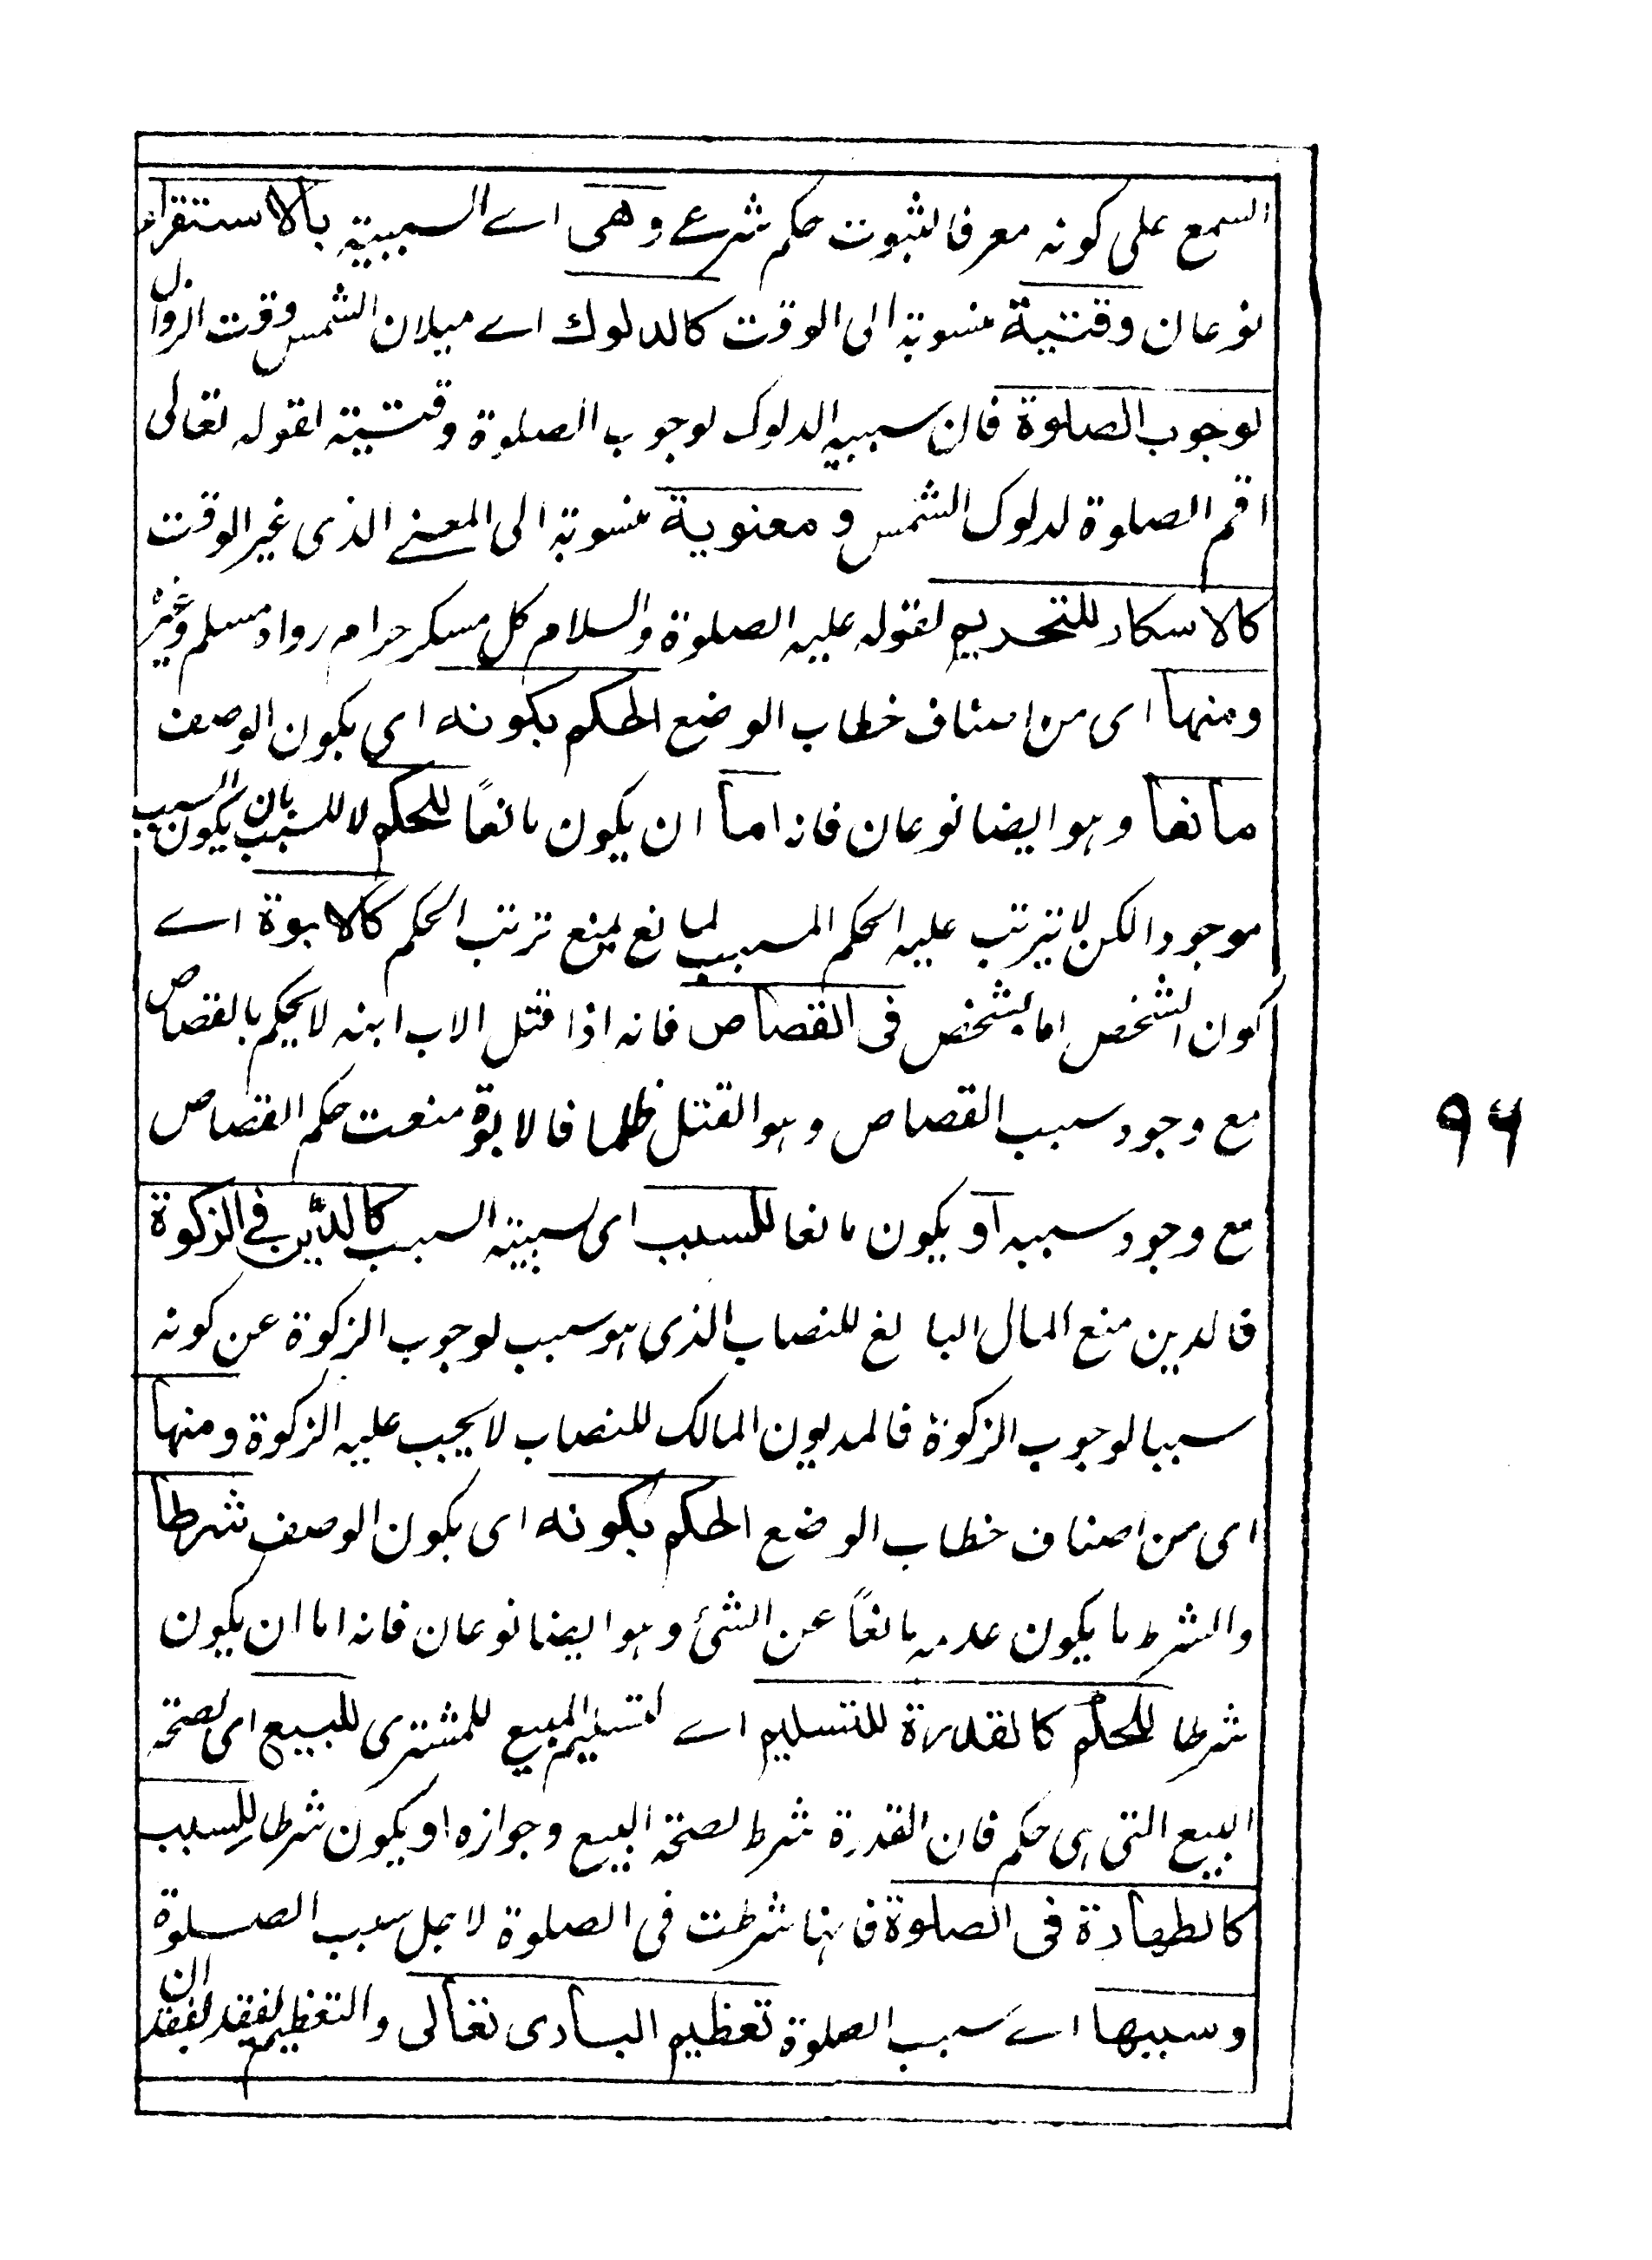 السمع على كونه معرفا لثبوت حكم شرعے وهى اے السببية بالاستقراء
نوعان وقتية منسوبة الى الوقت كالدلوك اے ميلان الشمس وقت الزوال
لوجوب الصلوة فان سببية الدلوك لوجوب الصلوة وقتية لقوله تعالى
اقم الصلوة لدلوك الشمس و معنوية منسوبة الى المعنے الذى غير الوقت
كالاسكار للتحريم لقوله عليه الصلوة والسلام كل مسكر حرام رواه مسلم وغيره
ومنها اى من اصناف خطاب الوضع الحكم بكونه اى بكون الوصف
مانعا وهو ايضا نوعان فانه اما ان يكون مانعاً للحكم لا للسبب بان يكون السبب
موجودا لكن لا يترتب عليه الحكم المسبب لمانع يمنع ترتب الحكم كالابوة اے
كون الشخص ابا لشخص فى القصاص فانه اذا قتل الاب ابنه لا يحكم بالقصاص
مع وجود سبب القصاص وهو القتل ظلما فالابوة منعت حكم القصاص
مع وجود سببه او يكون مانعا للسبب اى سببية السبب كالدَّين فے الزكوة
فالدين منع المال البالغ للنصاب الذى هو سبب لوجوب الزكوة عن كونه
سببا لوجوب الزكوة فالمديون المالك للنصاب لا يجب عليه الزكوة ومنها
اى من اصناف خطاب الوضع الحكم بكونه اى بكون الوصف شرطا
والشرط ما يكون عدمه مانعاً عن الشئ وهو ايضا نوعان فانه اما ان يكون
شرطا للحكم كالقدرة للتسليم اے لتسليم المبيع للمشترى للبيع اى لصحة
البيع التى هى حكم فان القدرة شرط لصحة البيع وجوازه او يكون شرطا للسبب
كالطهارة فى الصلوة فانها شرطت فى الصلوة لاجل سبب الصلوة
وسببها اے سبب الصلوة تعظيم البارى تعالى والتعظيم لفقد لفقدان
٩٦